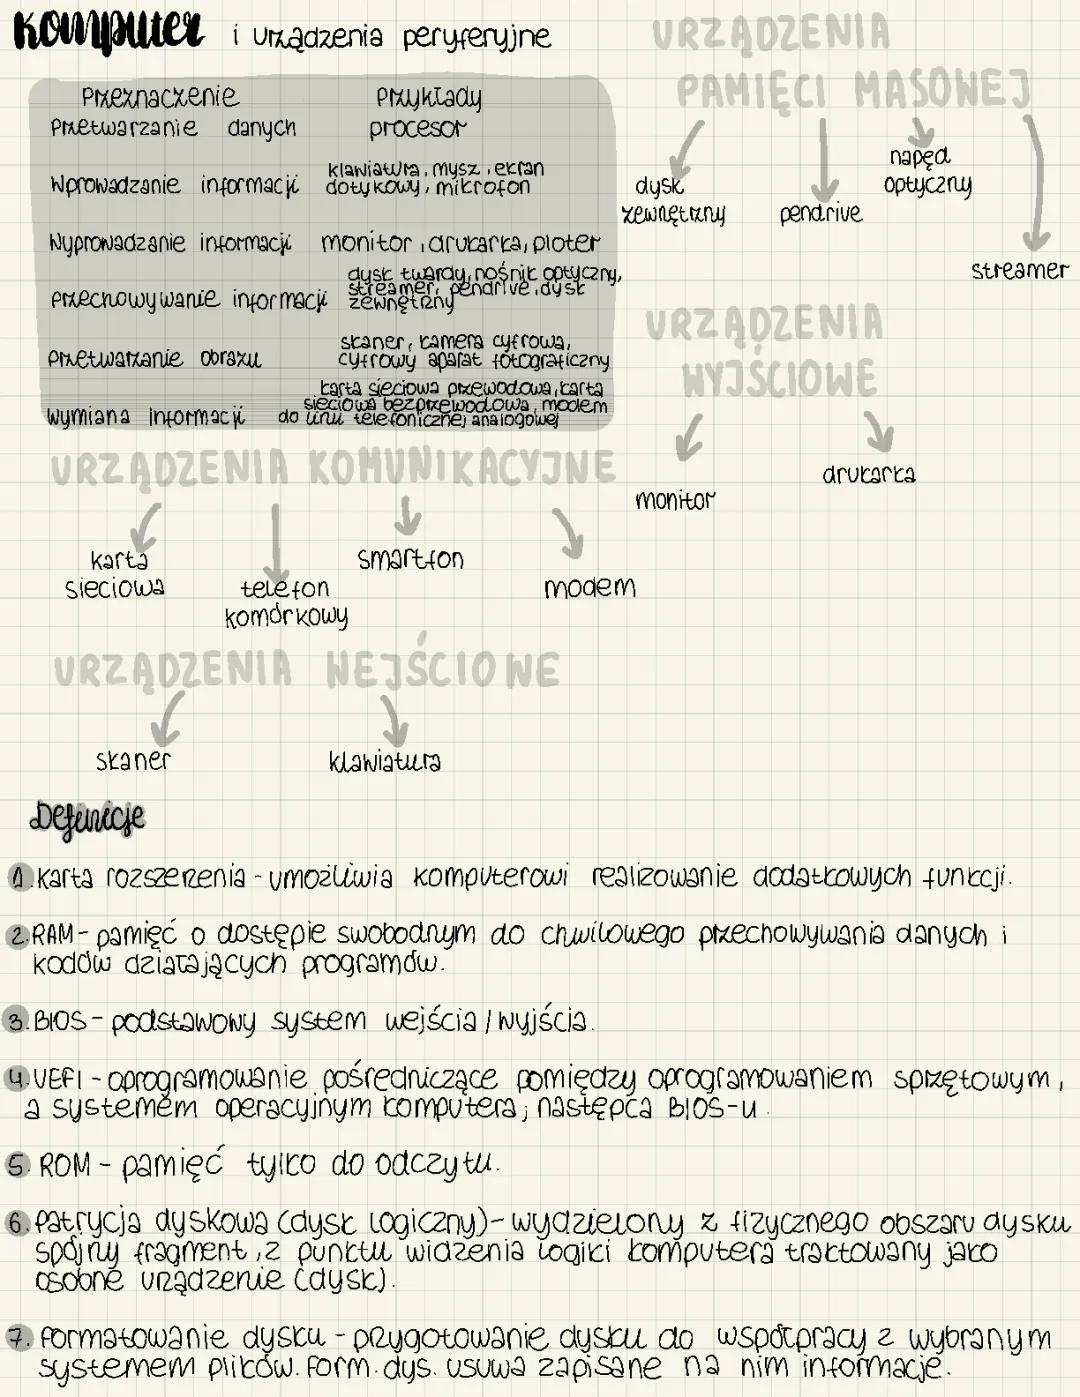 Komputer i urządzenia peryferyjne
Przeznaczenie Przykłady
Przetwarzanie danych procesor
Wprowadzanie informacji klawiatura, mysz, ekran
dotykowy, mikrofon
Wyprowadzanie informacji monitor, drukarka, ploter
przechowywanie informacji dysk twardy, nośnik optyczny,
streamer, pendrive, dysk
zewnętrzny
Przetwarzanie obrazu skaner, kamera cyfrowa,
cyfrowy aparat fotograficzny
wymiana informacji karta sieciowa przewodowa, karta
sieciowa bezprzewodowa, modem
do linii telefonicznej analogowej
URZĄDZENIA
PAMIĘCI MASOWEJ
dysk
zewnętrzny
pendrive
napęd
optyczny
streamer
URZĄDZENIA
WYJŚCIOWE
monitor
drukarka
URZĄDZENIA KOMUNIKACYJNE
karta
sieciowa
telefon
komórkowy
smartfon
modem
URZĄDZENIA WEJŚCIOWE
skaner
klawiatura
Definicje
1. Karta rozszerzenia - umożliwia komputerowi realizowanie dodatkowych funkcji.
2. RAM - pamięć o dostępie swobodnym do chwilowego przechowywania danych i
kodów działających programów.
3. BIOS - podstawowy system wejścia / wyjścia.
4. UEFI - oprogramowanie pośredniczące pomiędzy oprogramowaniem sprzętowym,
a systemem operacyjnym komputera; następca BIOS-u.
5. ROM - pamięć tylko do odczytu.
6. Patrycja dyskowa (dysk logiczny) - wydzielony z fizycznego obszaru dysku
spójny fragment, z punktu widzenia logiki komputera traktowany jako
osobne urządzenie (dysk).
7. Formatowanie dysku - przygotowanie dysku do współpracy z wybranym
systemem plików. Form. dys. usuwa zapisane na nim informacje.